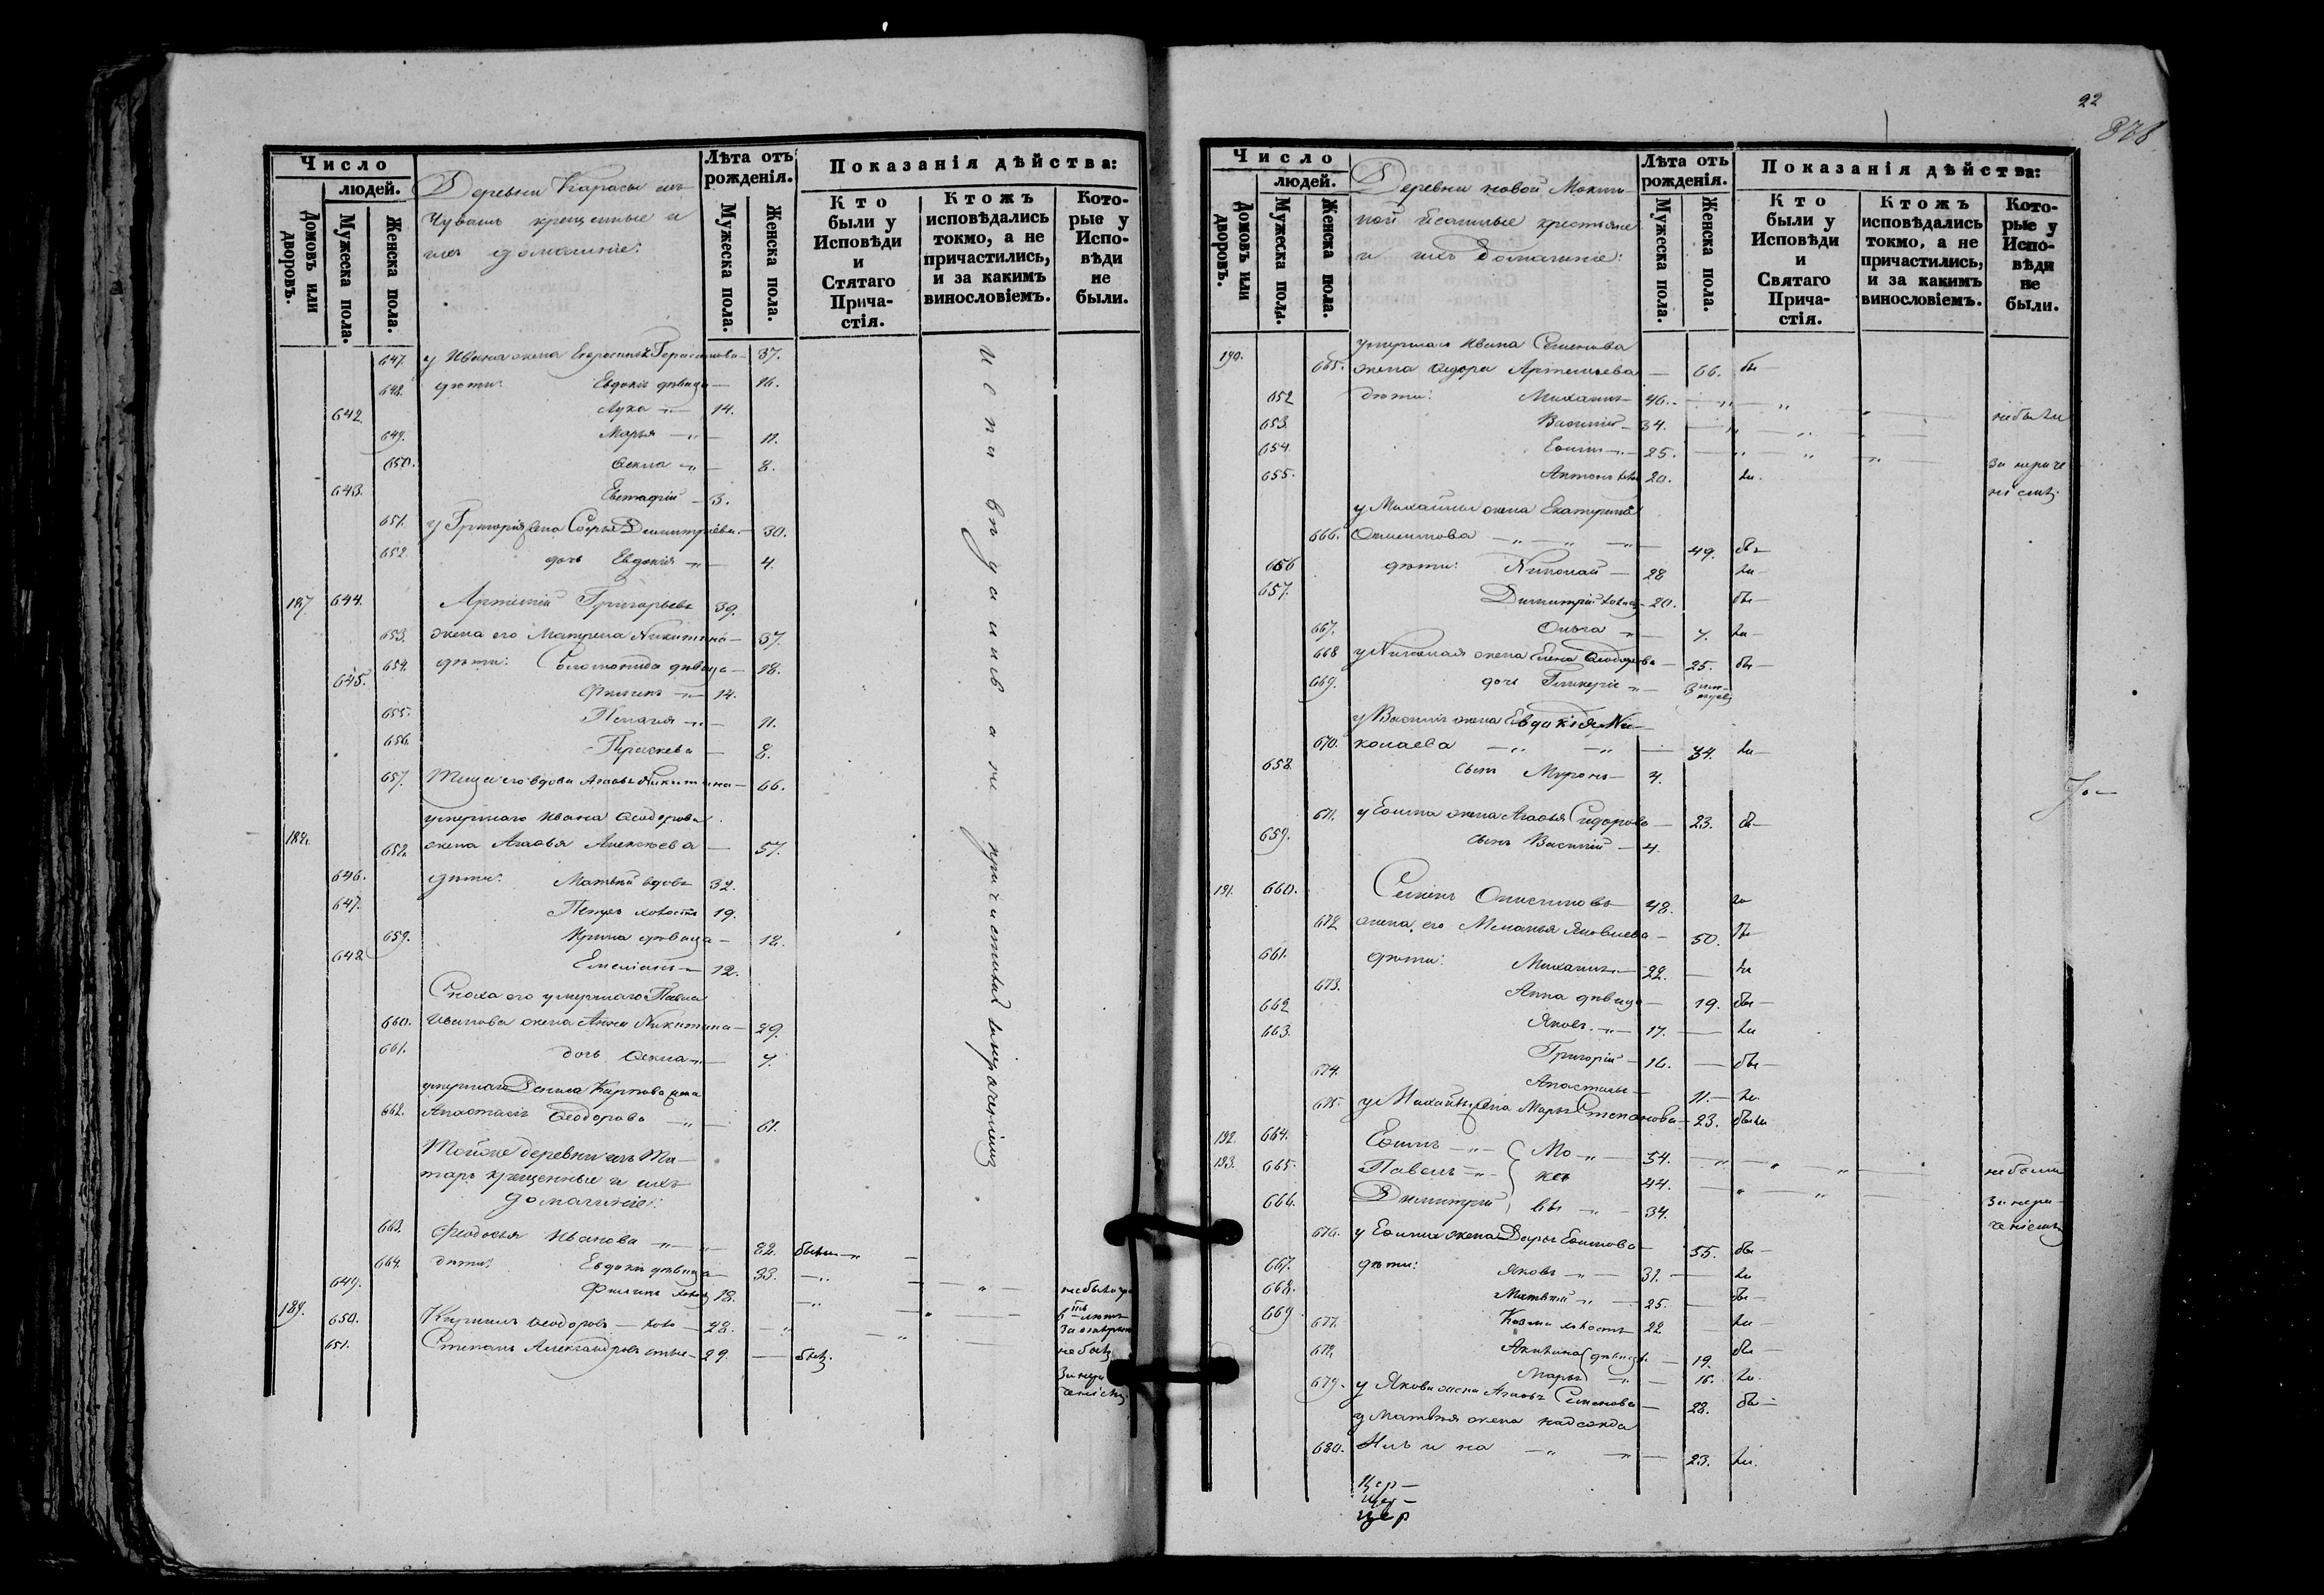 Число
людей.
Домовъ или дворовъ.
Мужеска пола.
Женска пола.
Деревни Карасы изъ
Чувашъ крещенные и
ихъ домашніе:
Лѣта отъ рожденія.
Мужеска пола.
Женска пола.
Показанія дѣйства:
Кто были у Исповѣди и Стятаго Прича-стія.
Ктожъ исповѣдались токмо, а не причастились, и за какимъ винословіемъ.
Кото-рые у Испо-вѣди не были.
647. у Ивана жена Герасимова — 37.
648. дѣти: Евдокія дѣвица — 16.
642. Лука — 14.
649. Марья — 11.
650. Ѳекла — 8.
643. Евстафій — 3.
651. у Григорія жена Софья Димитріева — 30.
652. дочь Евдокія — 4.
187. 644. Артемій Григорьевъ 39.
653. жена его Матрена Никитина — 37.
654. дѣти: Соломонида дѣвица — 18.
645. Филипъ — 14.
655. Пелагія — 11.
656. Параскева — 8.
657. Теща его вдова Агафья Никитина — 66.
умершаго Ивана Ѳеодорова
188. 658. жена Агафья Алексѣева — 57.
646. дѣти: Матвѣй вдовъ 32.
647. Петръ холостъ 19.
659. Ирина дѣвица — 18.
648. Емеліанъ — 12.
Сноха его умершаго Павла
660. Иванова жена Анна Никитина — 29.
661. дочь Ѳекла — 7.
умершаго Данила Карпова жена
662. Анастасія Ѳеодорова — 61.
Тойже деревни изъ Та-
таръ крещенные и ихъ
домашніе:
663. Ѳеодосья Иванова — 82. были
664. дѣти: Евдокія дѣвица — 33.
649. Филипъ 18. не были
189. 650. Кирилъ Ѳеодоровъ — 28.
651. Степанъ Александровъ — 29.
Исповѣдались а не причастились за нерачениемъ
22
878
Число
людей.
Домовъ или дворовъ.
Мужеска пола.
Женска пола.
Деревни новой Мокши-
ной ясашные крестьяне
и ихъ домашніе:
Лѣта отъ рожденія.
Мужеска пола.
Женска пола.
Показанія дѣйства:
Кто были у Исповѣди и Святаго Прича-стія.
Ктожъ исповѣдались токмо, а не причастились, и за какимъ винословіемъ.
Кото-рые у Испо-вѣди не были.
умершаго Ивана Семенова
190. 665. жена Ѳедора Артемьева — 66. бы—
652. дѣти: Михаилъ 46. не были
653. Василій — 34.
654. Ефимъ — 25. за нераче
655. Антонъ 20. ли. ніемъ
у Михайлы жена Екатерина
666. Онисимова — 49. бы—
656. дѣти: Николай — 28 ли—
657. Димитрій 20. бы—
667. Ольга — 7. ли—
668. у Николая жена Елена Ѳеодорова — 25. бы—
669. дочь Гликерія —
у Василія жена Евдокія Ни-
670. колаева — 34. ли—
658. сынъ Миронъ — 4.
671. у Ефима жена Агафья Сидорова — 23. бы—
659. сынъ Василій — 4.
191. 660. Семенъ Онисимовъ 48. ли
672. жена его Меланья Яковлева — 50. бы—
661. дѣти: Михаилъ — 22. ли
673. Анна дѣвица — 19. бы—
662. Яковъ — 17. ли
663. Григорій — 16. бы—
674. Анастасья — 11. ли
675. у Михайлы жена Марья Степанова — 23. были
192. 664. Ефимъ 54. не были
193. 665. Павелъ 44.
666. Димитрій 34. за нера-
676. у Ефима жена Дарья Ефимова — 55. бы— ченіемъ
667. дѣти: Яковъ — 31. ли
668. Матвѣй — 25. бы—
669. Козма холостъ 22 ли—
677. Акилина дѣвица — 19. бы—
678. Марья — 16. ли
679. у Якова жена Агафья Семенова — 28. бы—
у Матвѣя жена Надежда
680. Ильина — 23. ли.
Цер—
Цер—
Цер